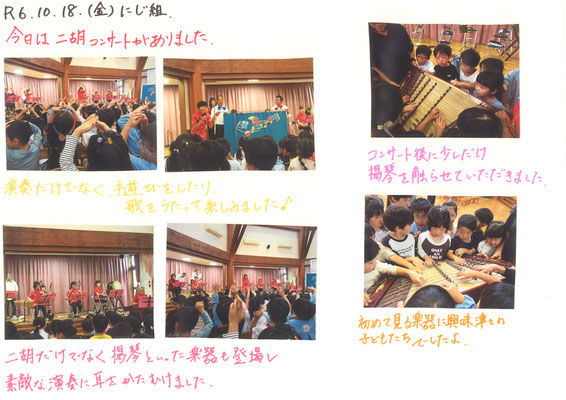 R6.10.18.(金)にじ組.
今日は二胡コンサートがありました。
演奏だけでなく、手遊びをしたり
歌をうたって楽しみました♪
二胡だけでなく揚琴といった楽器も登場し
素敵な演奏に耳をかたむけました。
コンサート後に少しだけ
揚琴を触らせていただきました。
初めて見る楽器に興味津々の
子どもたちでしたよ。